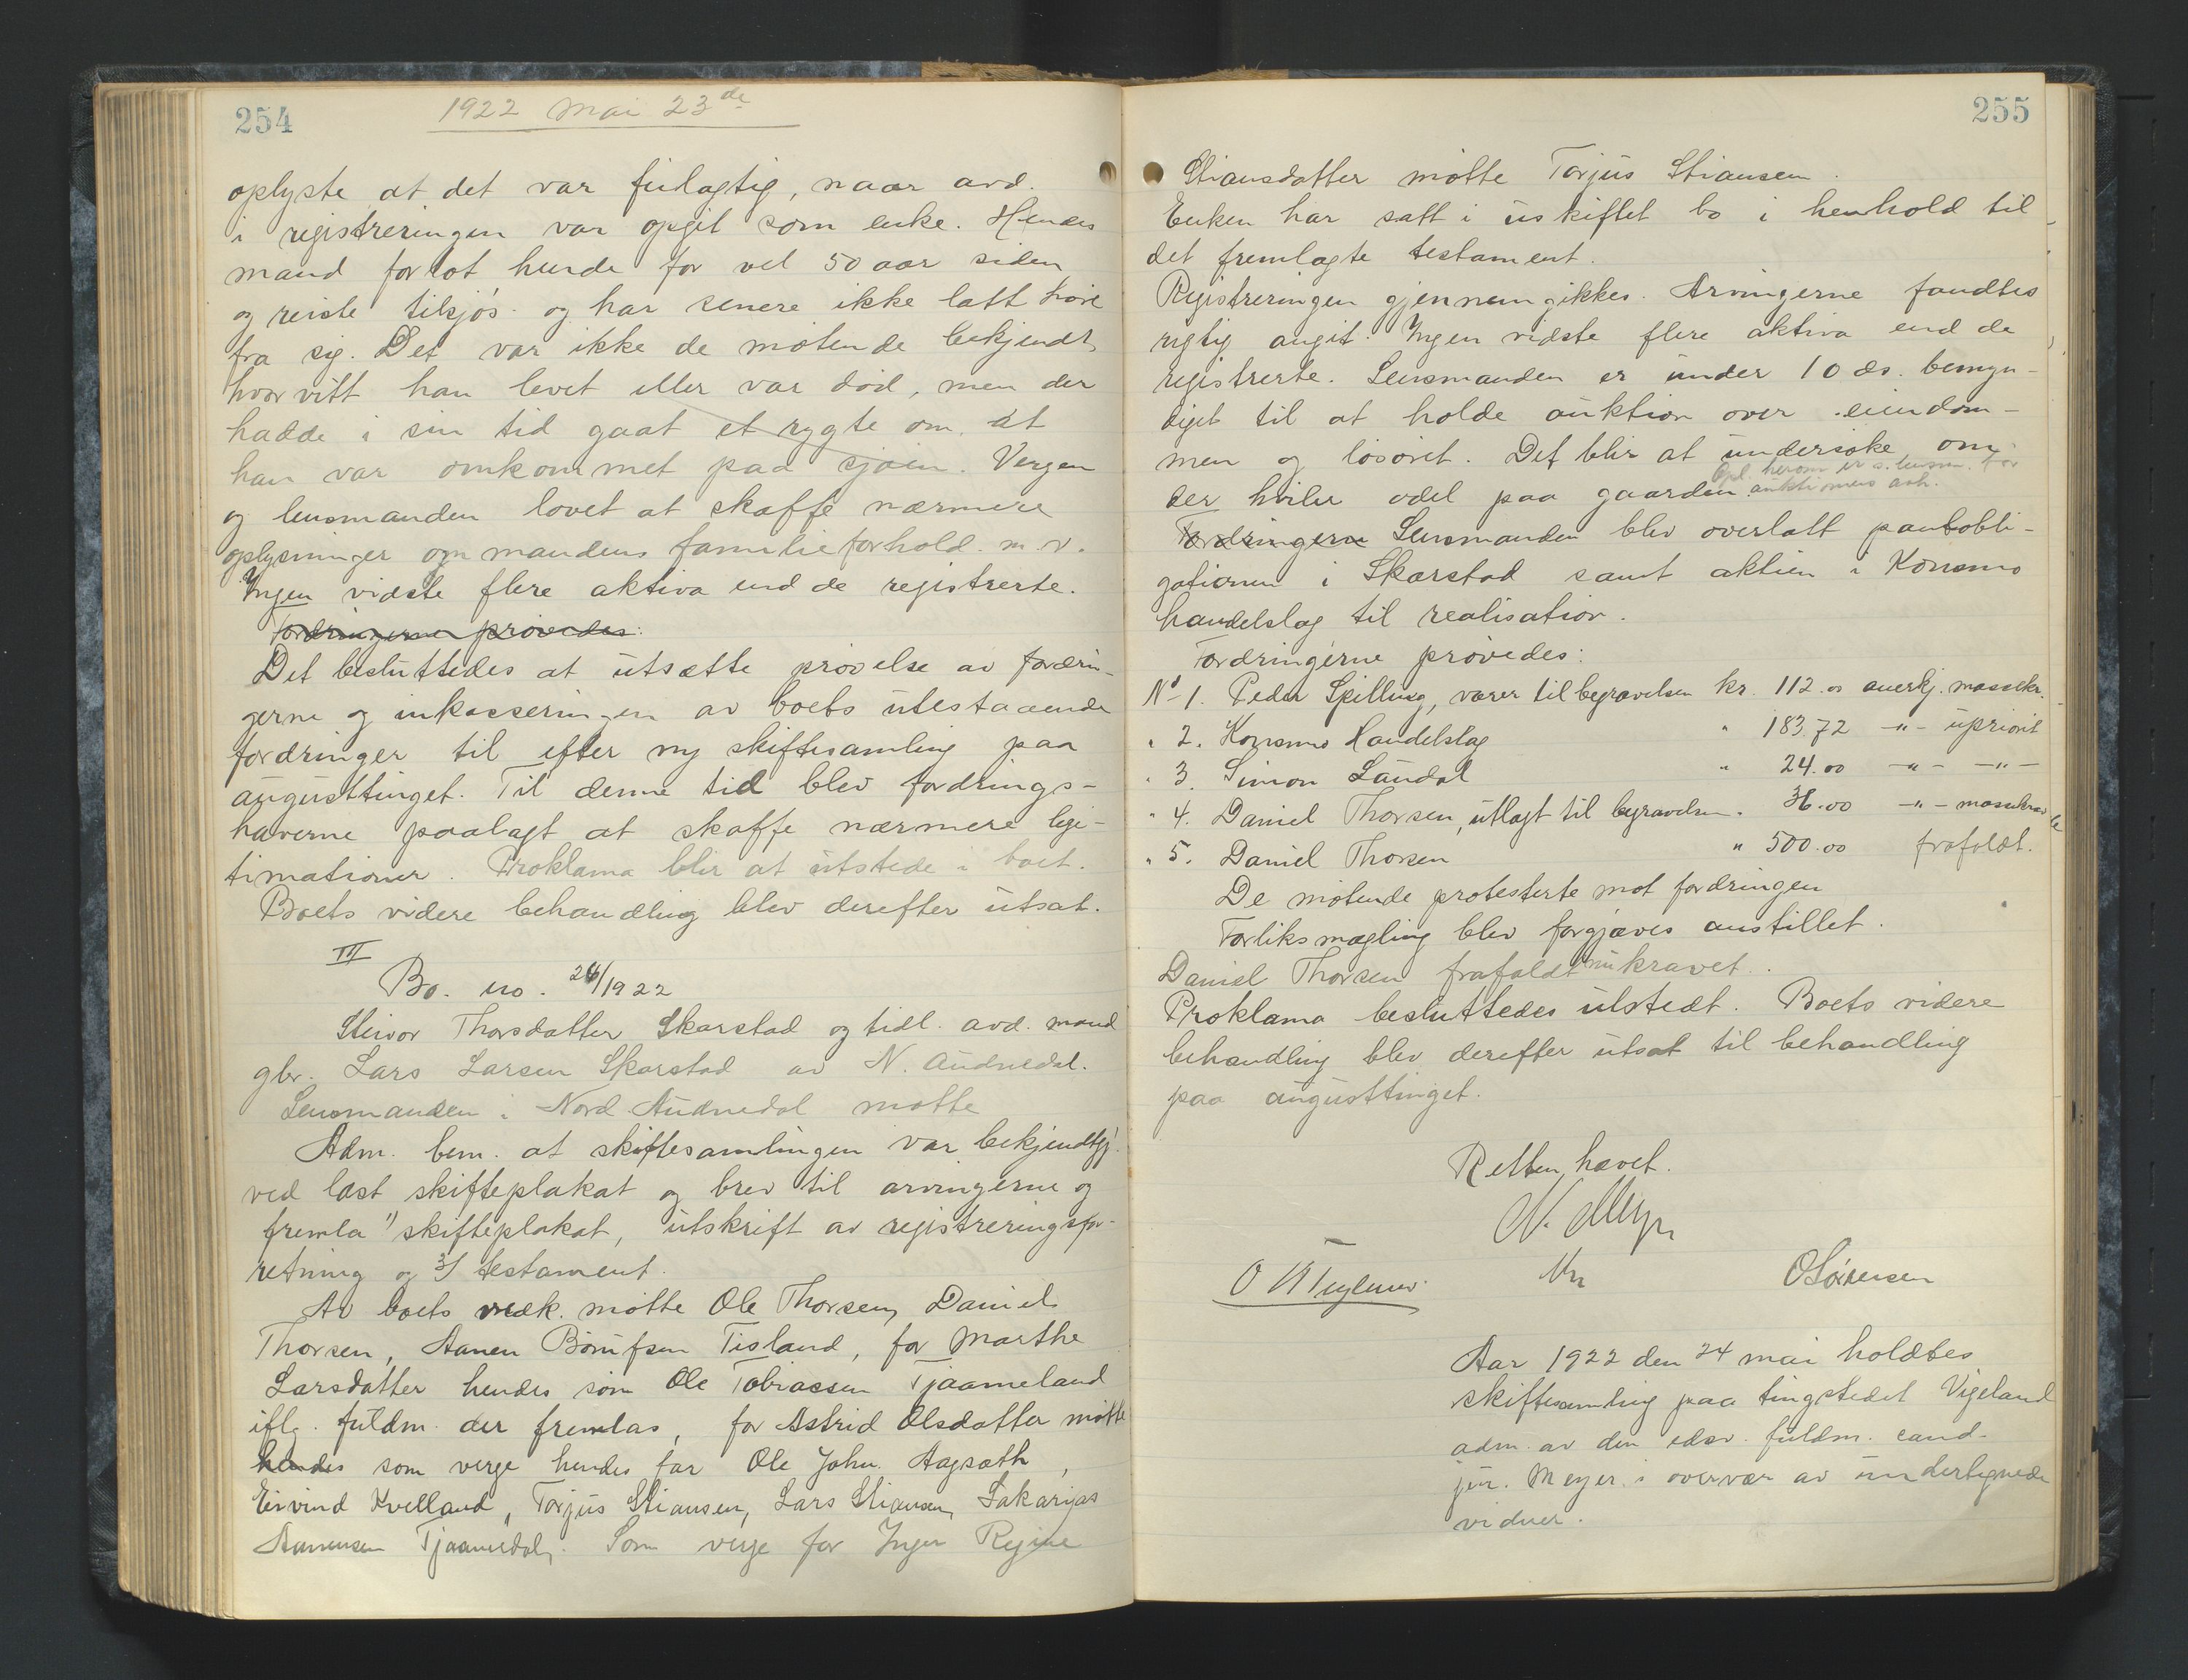 254
1922 Mai 23de
oplyste at det var feilagtig, naar avd.
i registreringen var opgit som enke. Hendes
mand forlot hende for vel 50 aar siden
og reiste tilsjøs og har senere ikke latt høre
fra sig. Det var ikke de møtende bekjendt
hvorvitt han levet eller var død, men der
hadde i sin tid gaat et rygte om at
han var omkommet paa sjøen. Vergen
og lensmanden lovet at skaffe nærmere
oplysninger om mandens familieforhold m.v.
Ingen vidste flere aktiva end de registrerte.
Fordringerne prøvedes:
Det besluttedes at utsætte prøvelse av fordrin-
gerne og inkasseringen av boets utestaaende
fordringer til efter ny skiftesamling paa
augusttinget. Til denne tid blev fordrings-
haverne paalagt at skaffe nærmere legi-
timationer. Proklama blir at utstede i boet.
Boets videre behandling blev derefter utsat.
III
Bo. no. 26/1922
Steivor Thorsdatter Skarstad og tidl. avd. mand
gbr. Lars Larsen Skarstad av N. Audnedal.
Lensmanden i Nord Audnedal møtte
Adm. bem. at skiftesamlingen var bekjendtgj.
ved læst skifteplakat og brev til arvingerne og
fremla 1) skifteplakat, utskrift av registreringsfor-
retning og 3) testament.
Av boets vedk. møtte Ole Thorsen, Daniel
Thorsen, Aanen Børufsen Tisland, for Marthe
Larsdatter hendes søn Ole Tobiassen Tjaameland
iflg. fuldm. der fremlas, for Astrid Olsdatter møtte
hendes som verge hendes far Ole John. Aagsæth,
Eivind Kvelland, Torjus Stiansen, Lars Stiansen, Sakarias
Aanensen Tjaamedal. Som verge for Inger Regine
255
Stiansdatter møtte Torjus Stiansen.
Enken har satt i uskiftet bo i henhold til
det fremlagte testament.
Registreringen gjennemgikkes. Arvingerne fandtes
rigtig angit. Ingen vidste flere aktiva end de
registrerte. Lensmanden er under 10 ds. bemyn-
diget til at holde auktion over eiendom-
men og løsøret. Det blir at undersøke om
der hviler odel paa gaarden. Opl. herom er s. lensm. før
auktionens avh.
Fordringerne Lensmanden blev overlatt pantobli-
gationen i Skarstad samt aktien i Konsmo
handelslag til realisation.
Fordringerne prøvedes:
No 1. Peder Spilling, varer til begravelsen kr. 112.00 anerkj. massekr.
" 2. Konsmo Handelslag " 183.72 -"- upriorit
" 3. Simon Laudal " 24.00 -"- -"-
" 4. Daniel Thorsen, utlagt til begravelsen " 36.00 -"- massekrav
" 5. Daniel Thorsen " 500.00 frafaldt.
De møtende protesterte mot fordringen
Forliksmægling blev forgjæves anstillet.
Daniel Thorsen frafaldt nu kravet.
Proklama besluttedes utstedt. Boets videre
behandling blev derefter utsat til behandling
paa augusttinget.
Retten hævet.
N. Meyer
O Sørensen
Aar 1922 den 24 mai holdtes
skiftesamling paa tingstedet Vigeland
adm. av den edsv. fuldm. cand.
jur. Meyer i overvær av undertegnede
vidner.